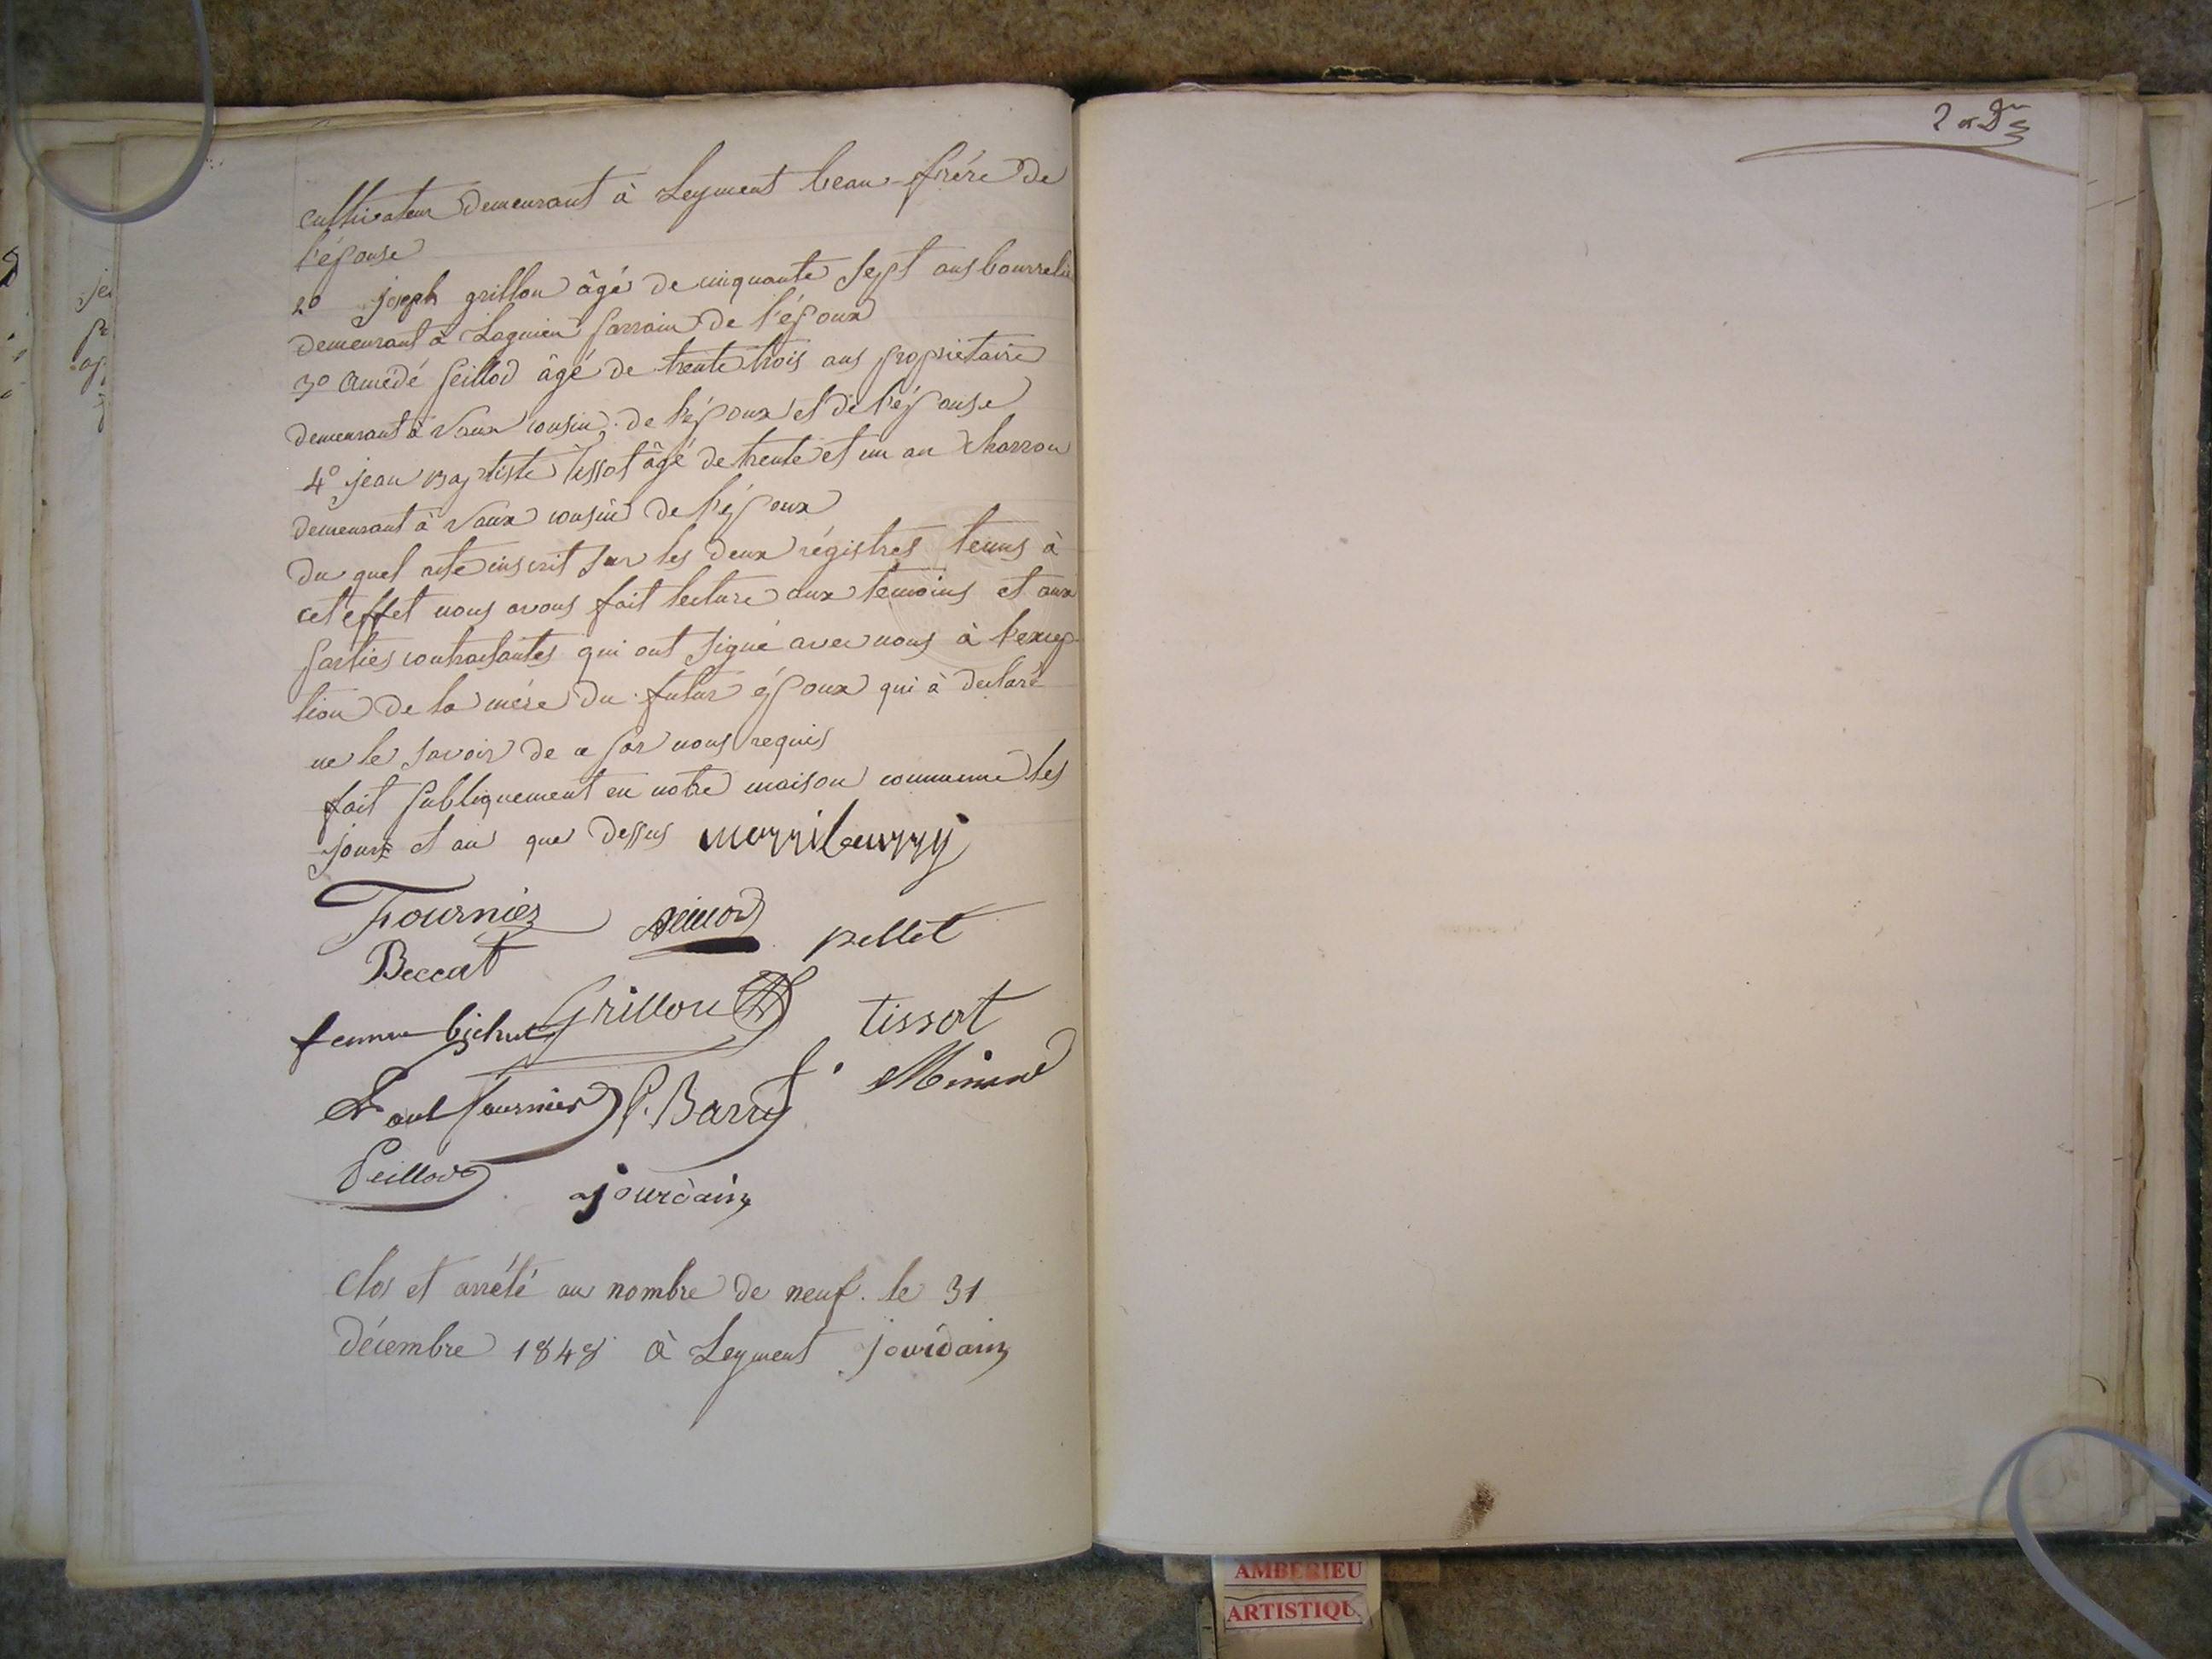 cultivateur demeurant à Leyment beau-frére de
l'épouse
2o joseph grillon âgé de cinquante sept ans bourrelie
demeurant à Lagnieu parrain de l'époux
3o Amédé peillod âgé de trente trois ans propriétaire
demeurant à Vaux cousin de l'époux et de l'épouse
4o jean Baptiste Tissot âgé de trente et un an charron
demeurant à Vaux cousin de l'époux
du quel acte inscrit sur les deux régistres tenus à
cet effet nous avons fait lecture aux temoins et aux
parties contractantes qui ont signé avec nous à l'excep
tion de la mère du futur époux qui à declaré
ne le savoir de ce par nous requis
fait publiquement en notre maison commune les
jours et an que dessus
Fournier pellet
Beccat
femme bichat Grillon tissot
Paul fournier P. Barry
Peillod jourdain
Clos et arrêté au nombre de neuf. le 31
décembre 1848 à Leyment jourdain
AMBERIEU
ARTISTIQU